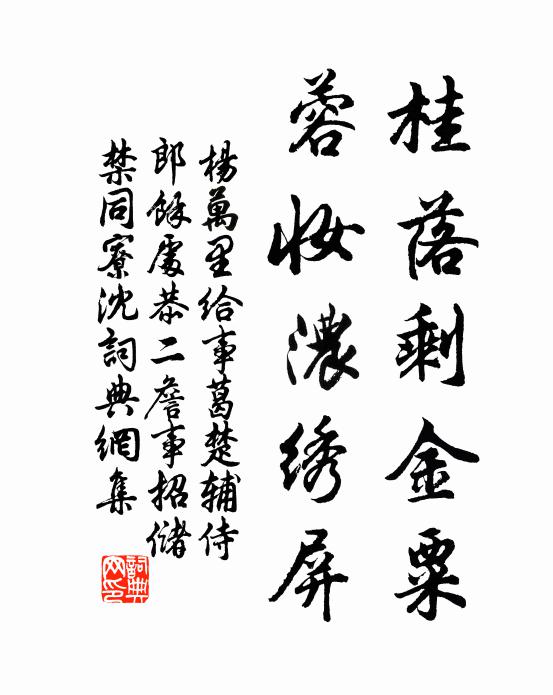 桂落剩金粟
蓉妝濃綉屏
楊萬里給事葛楚輔侍
郎餘處恭二詹事招儲
禁同寮沈詞典網集
詞典
网印